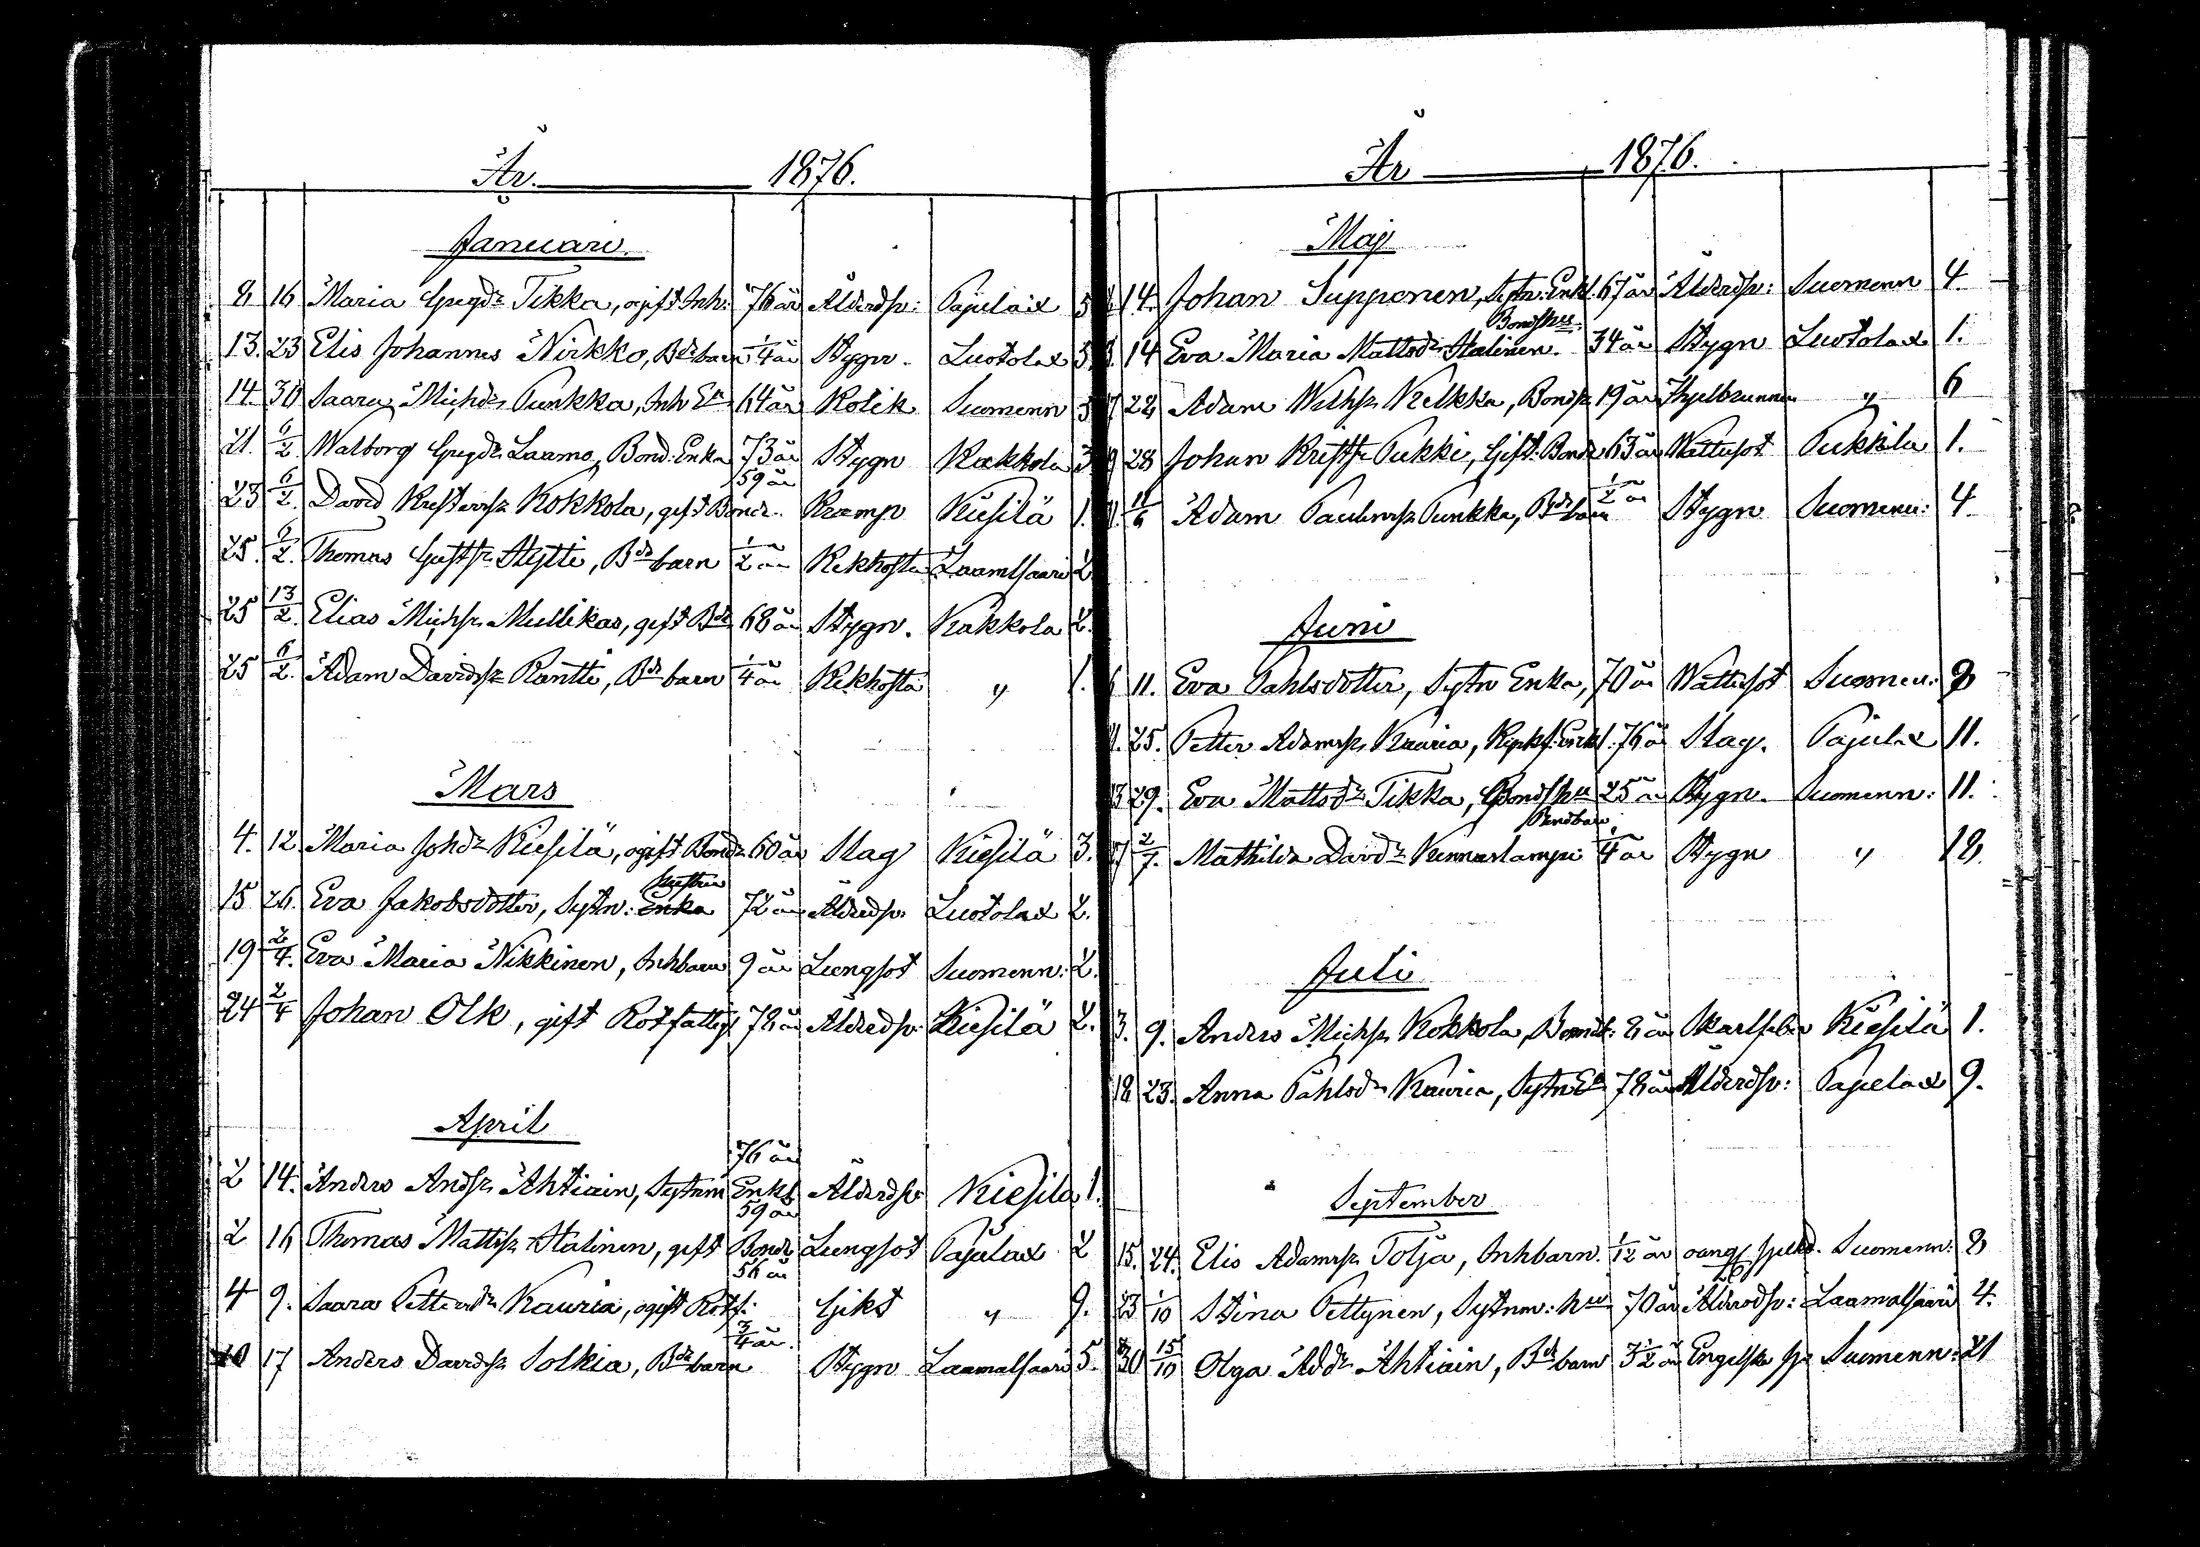 År. 1876.
Januari.
8 16 Maria Gregdr Tikka, ogift Inh: 76 år Ålderdsv: Pajulax 3
13. 23 Elis Johannes Nirkko, Bdebarn 1/4 år Htygn. Luotolax 3
14 30 Saara Michdr Punkka, Inh Ea 64 år Kolik Suomenn 3
21. 6/2. Walborg Gregdr Laamo, Bond: Enka 73 år Htygn Kakkola 3
23 6/2. David Kristerssr Kokkola, gift Bonde. 59 år Kramp Kiesilä 1.
25. 6/2. Thomas Gustfsr Hytti, Bde barn 1/2 år Kikhosta Laamalsaari 2
25 13/2. Elias Michsr Mullikas, gift Bde 68 år Htygn. Kakkola 2.
25 6/2. Adam Davidsr Rantti, Bde barn 1/4 år Kikhosta " 1.
Mars
4. 12 Maria Johdr Kiesilä, ogift Bondr 60 år Slag Kiesilä 3.
15 26. Eva Jakobsdotter, Sytn: Enka 72 år Ålderdsv. Luotolax 2.
19 2/4. Eva Maria Nikkinen, Inhbarn 9 år Lungsot Suomenn: 2.
24 2/4 Johan Olk, gift Rotfattig 78 år Ålderdsv. Kiesilä 2.
April
2 14. Anders Andsr Ahtiain, Sytnm Enkl. 76 år Ålderdsv Kiesilä 1.
2 16 Thomas Mattssr Halinen, gift Bonde 59 år Lungsot Pajulax 2
4 9. Saara Pettersdr Kauria, ogift Rotf. 56 år Gikt " 9.
10 17 Anders Davidsr Solkia, Bde barn 3/4 år. Htygn Laamalsaari 5.
År 1876.
Maj
14. Johan Supponen, Sytn: Enkl. 67 år Ålderdsv: Suomenn 4
14 Eva Maria Mattsdr Halinen. Bondhu 34 år Htygn Luotolax 1.
28 Adam Wilhsr Kelkka, Bondsr 19 år " 6
28 Johan Kristfr Pukki, Gift Bonde 63 år Wattusot Pukkila 1.
11/6 Adam Paulussr Punkka, Bde barn 1/2 år Htygn Suomenn: 4
Juni
6 11. Eva Pahlsdotter, Sytn Enka, 70 år Wattusot Suomen: 9
25. Petter Adamssr Kauria, Enkl. 76 år Slag. Pajulax 11.
13 29. Eva Mattsdr Tikka, Bondhu 25 år Htygn. Suomenn: 11.
17 2/7. Mathilda Davdr Kinnaslampi Bondbarn 1/4 år Htygn " 18.
Juli
3. 9. Anders Michsr Kokkola, 8 år Skarlfeber Kiesilä 1.
18 23. Anna Påhlsdr Kauria, Sytn Ea 78 år Ålderdsv: Pajulax 9.
September
15. 24. Elis Adamssr Tolja, Inhbarn. 1/12 år Suomenn: 8
23 1/10 Stina Pettynen, Sytnm: hu 70 år Ålderdsv: Laamalsaari 4.
30 15/10 Olga Addr Ahtiain, Bde barn 3 1/2 år Engelska sj: Suomenn: 21